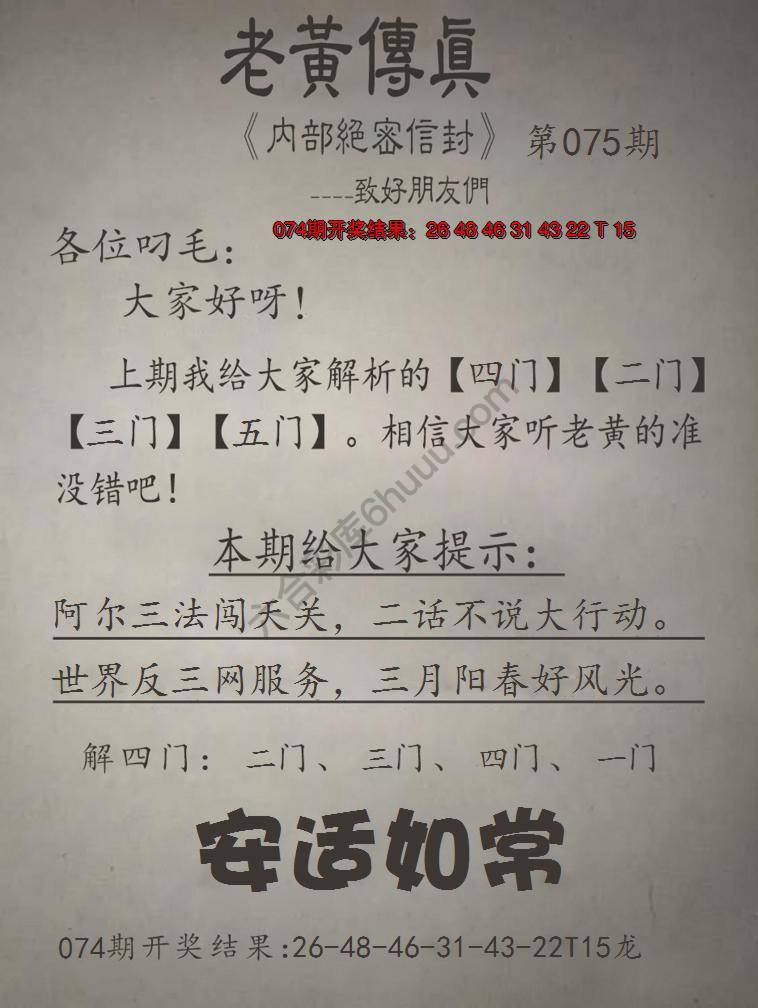 老黃傳真
《内部絕密信封》 第075期
----致好朋友們
074期开奖结果：26 48 46 31 43 22 T 15
各位叼毛：
大家好呀！
上期我给大家解析的【四门】【二门】
【三门】【五门】。相信大家听老黄的准
没错吧！
本期给大家提示：
阿尔三法闯天关，二话不说大行动。
世界反三网服务，三月阳春好风光。
解四门： 二门、 三门、 四门、 一门
安适如常
074期开奖结果:26-48-46-31-43-22T15龙
六合彩库6huuu.com